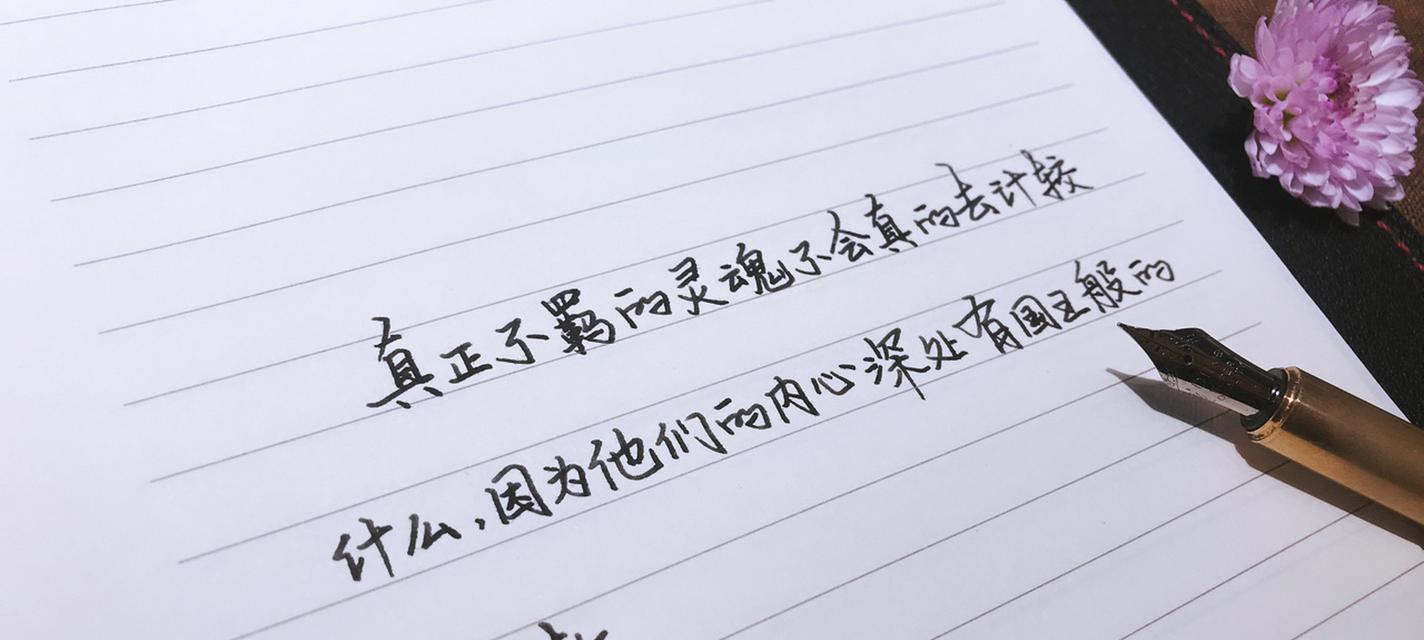 真正不羁的灵魂不会真的去计较
什么,因为他们的内心深处有国王般的